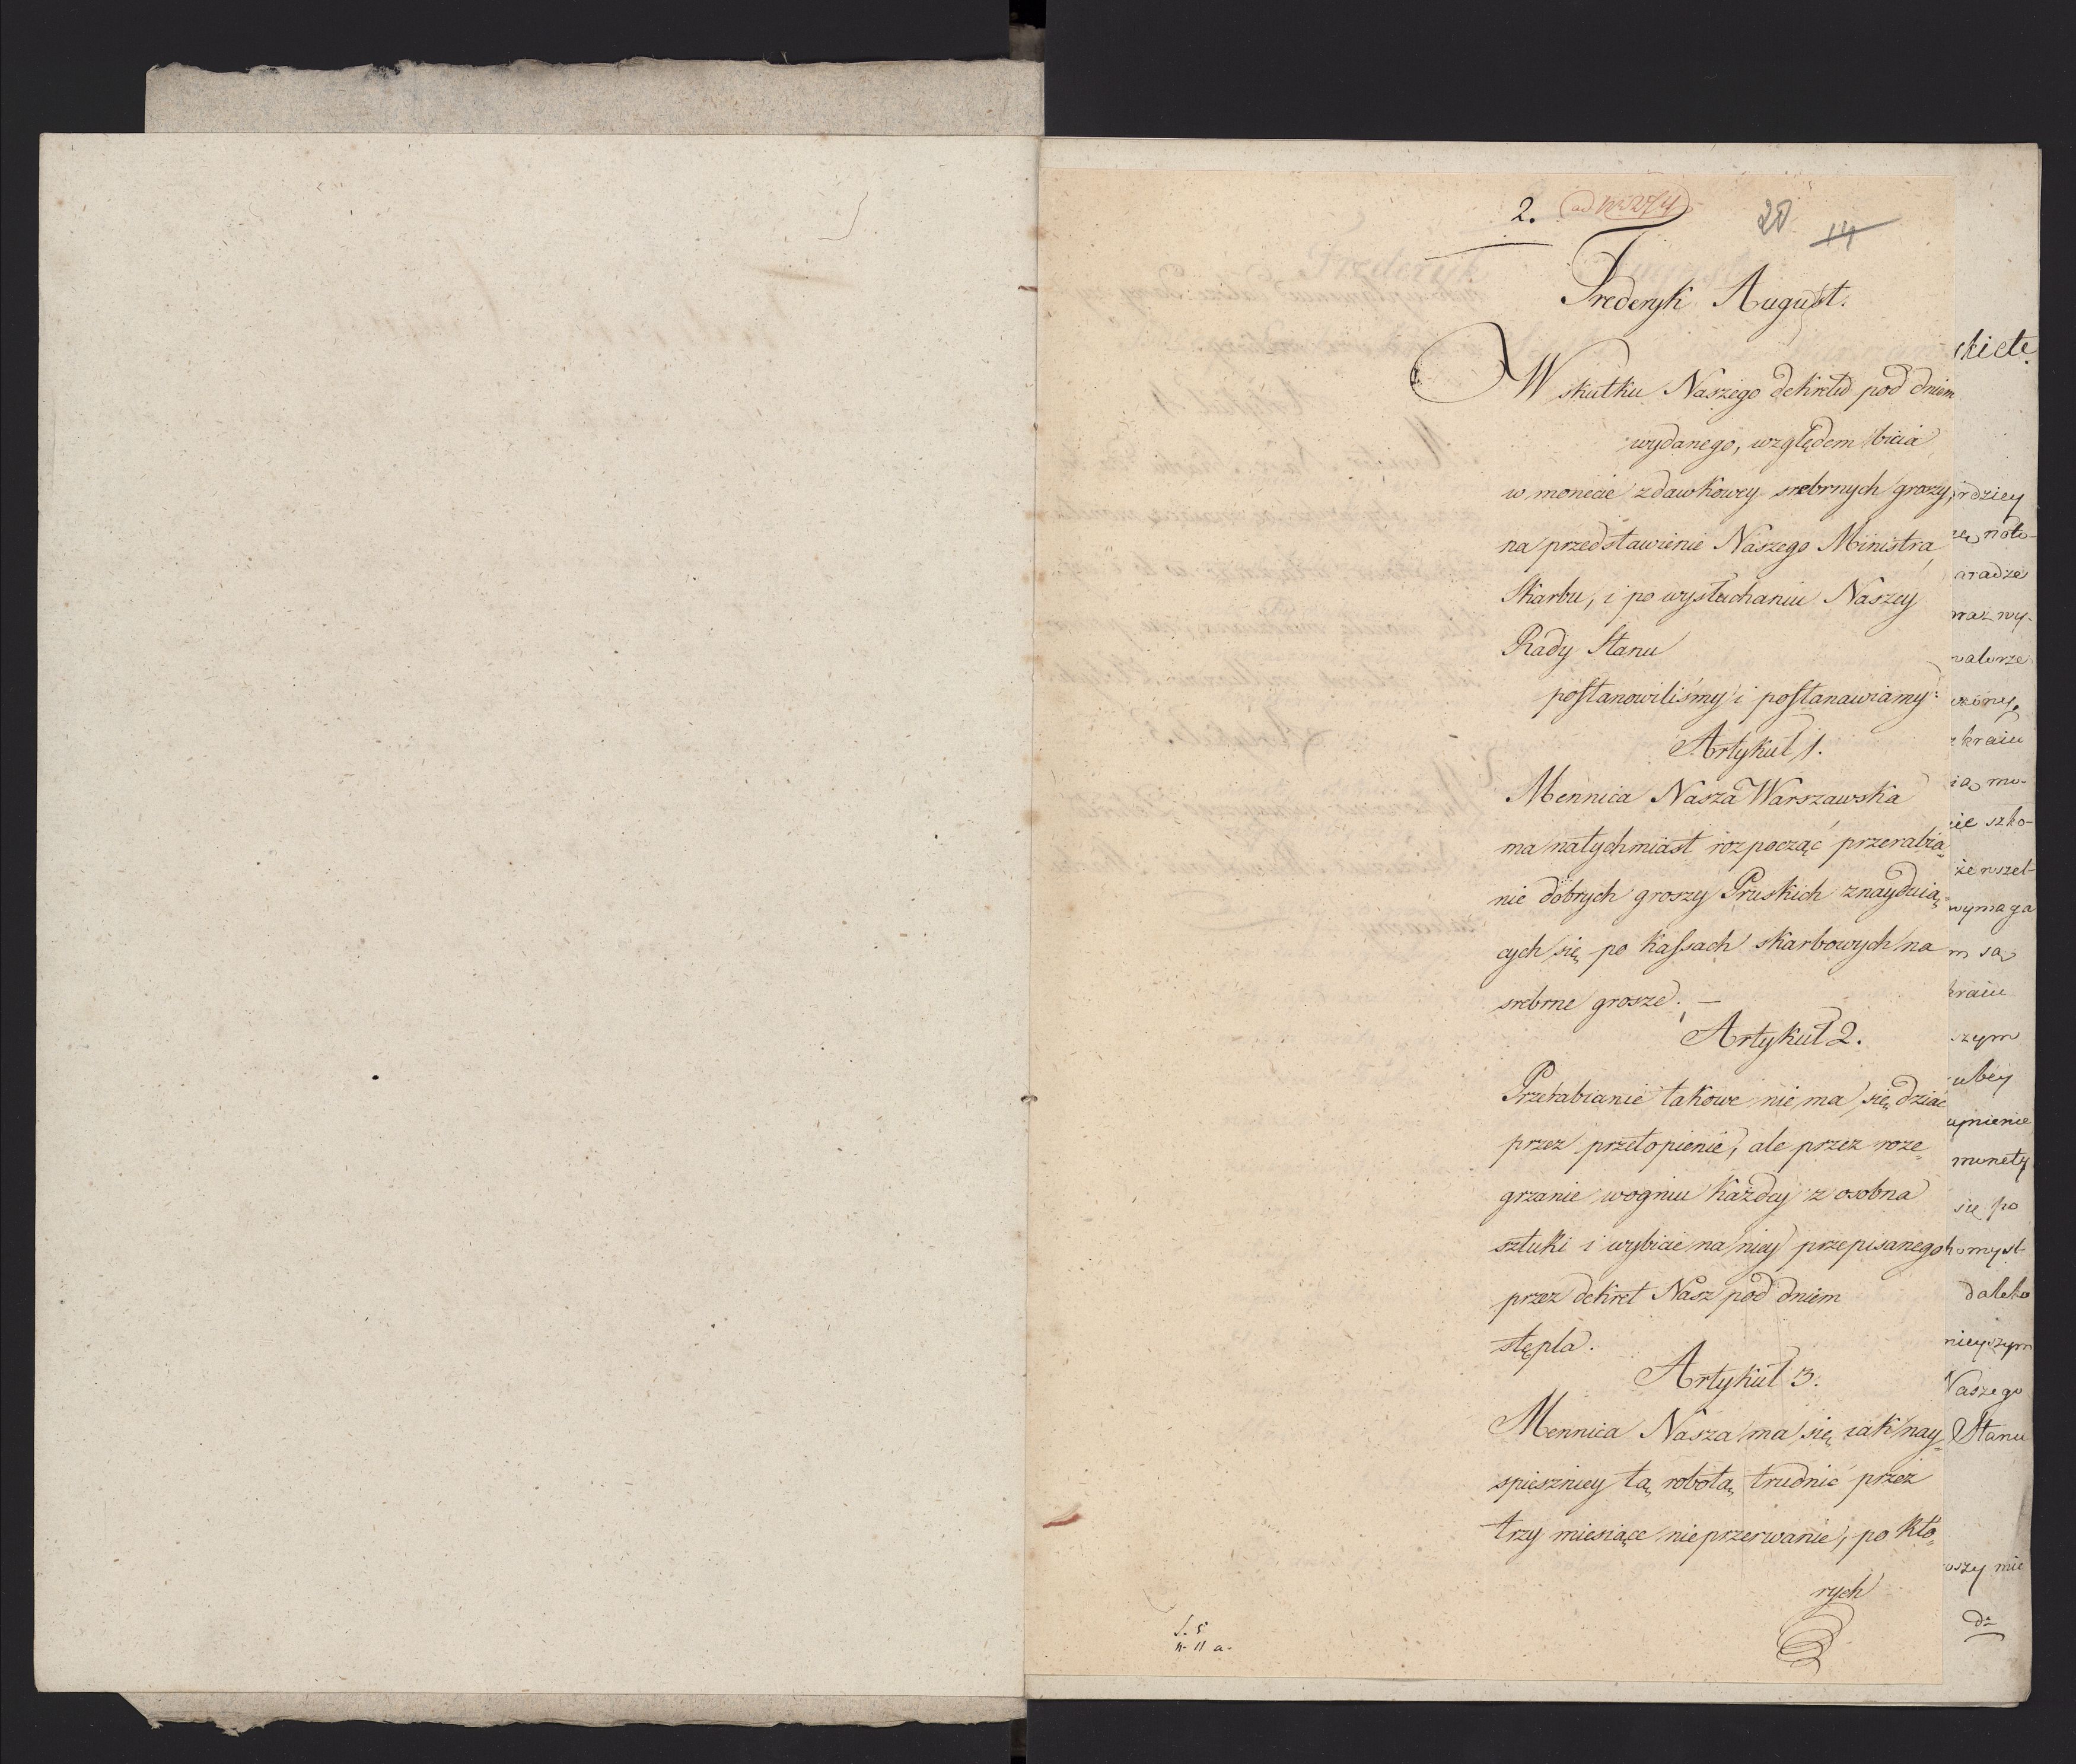 2. ad Nr 274
20 14
Frederyk August.
W skutku Naszego dekretu pod dniem
wydanego, względem bicia
w monecie zdawkowey srebrnych groszy,
na przedstawienie Naszego Ministra
Skarbu, i po wysłuchaniu Naszey
Rady Stanu
postanowiliśmy i postanawiamy:
Artykuł 1.
Mennica Nasza Warszawska
ma natychmiast rozpocząć przerabia=
nie dobrych groszy Pruskich znayduią=
cych się po Kassach skarbowych na
srebrne grosze. —
Artykuł 2.
Przerabianie takowe nie ma się dziać
przez przetopienie, ale przez roze=
grzanie wogniu Każdey z osobna
sztuki i wybicie na niey przepisanego
przez dekret Nasz pod dniem
stępla.
Artykuł 3.
Mennica Nasza ma się iak nay=
spieszniey tą robotą trudnić przez
trzy miesiące nieprzerwanie, po Któ=
rych
S. 5
n. 11 a.
rdziey
aradze
raz wy-
walorze
kraiu
ią mo-
ie szko-
że wszel-
wymaga
m są
kraiu
szym
ubey
upnienie
monety
się po
omysł
daleko
nieyszym
Naszego
Stanu
oszy mie